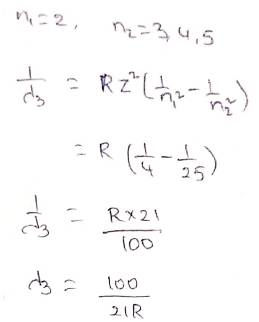 n₁=2, n₂=3,4,5
1/λ₃ = RZ²(1/n₁² - 1/n₂²)
= R (1/4 - 1/25)
1/λ₃ = R×21/100
λ₃ = 100/21R